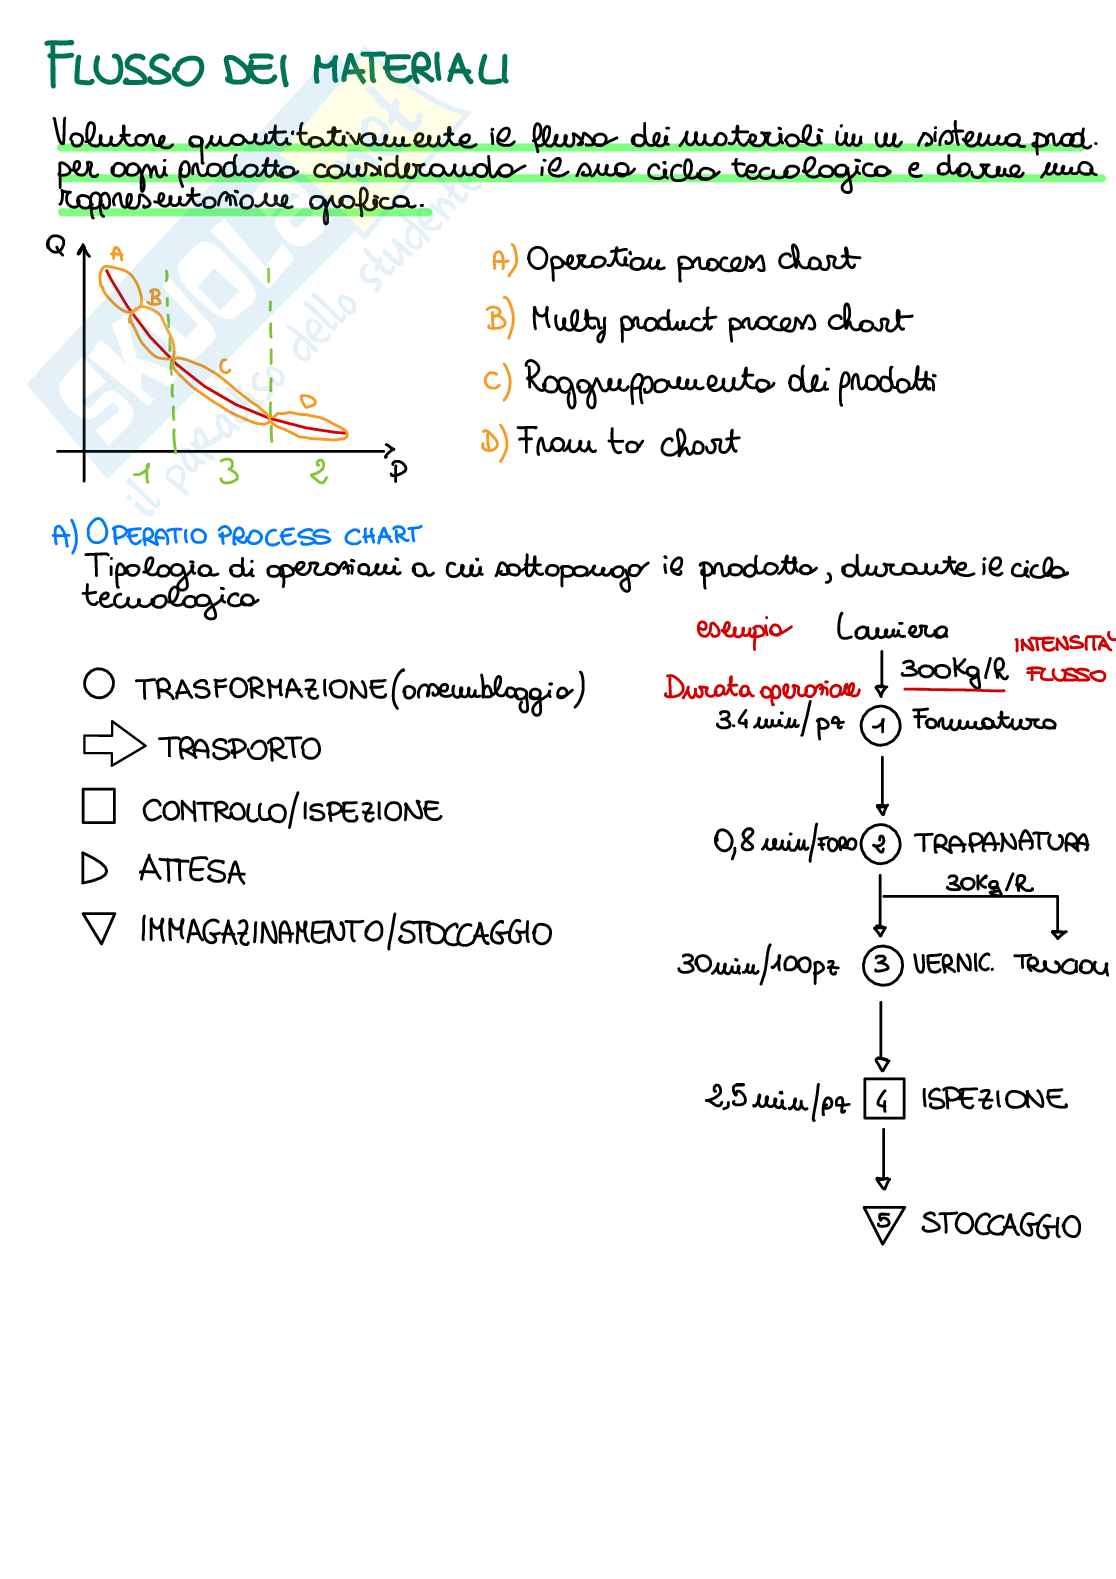 FLUSSO DEI MATERIALI
Valutare quantitativamente il flusso dei materiali in un sistema prod.
per ogni prodotto considerando il suo ciclo tecnologico e darne una
rappresentazione grafica.
Q
A
B
C
D
1 3 2 P
A) Operation process chart
B) Multy product process chart
C) Raggruppamento dei prodotti
D) From to chart
A) OPERATIO PROCESS CHART
Tipologia di operazioni a cui sottopongo il prodotto, durante il ciclo
tecnologico
TRASFORMAZIONE (assemblaggio)
TRASPORTO
CONTROLLO/ISPEZIONE
ATTESA
IMMAGAZINAMENTO/STOCCAGGIO
esempio Lamiera
300Kg/R INTENSITA'
FLUSSO
Durata operazione
3.4 min/pz 1 Formatura
0,8 min/FORO 2 TRAPANATURA
30Kg/R
30min/100pz 3 VERNIC. TRUCIOLI
2,5 min/pz 4 ISPEZIONE
5 STOCCAGGIO
SKUOLA.net
il paradiso dello studente